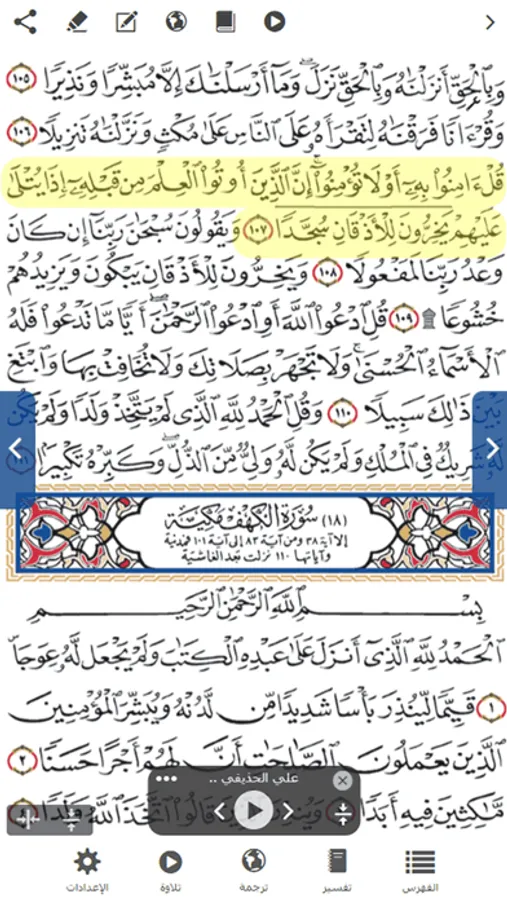 وَبِٱلْحَقِّ أَنزَلْنَٰهُ وَبِٱلْحَقِّ نَزَلَ ۗ وَمَآ أَرْسَلْنَٰكَ إِلَّا مُبَشِّرًا وَنَذِيرًا ١٠٥
وَقُرْءَانًا فَرَقْنَٰهُ لِتَقْرَأَهُۥ عَلَى ٱلنَّاسِ عَلَىٰ مُكْثٍ وَنَزَّلْنَٰهُ تَنزِيلًا ١٠٦
قُلْ ءَامِنُوا۟ بِهِۦٓ أَوْ لَا تُؤْمِنُوٓا۟ ۚ إِنَّ ٱلَّذِينَ أُوتُوا۟ ٱلْعِلْمَ مِن قَبْلِهِۦٓ إِذَا يُتْلَىٰ
عَلَيْهِمْ يَخِرُّونَ لِلْأَذْقَانِ سُجَّدًا ١٠٧ وَيَقُولُونَ سُبْحَٰنَ رَبِّنَآ إِن كَانَ
وَعْدُ رَبِّنَا لَمَفْعُولًا ١٠٨ وَيَخِرُّونَ لِلْأَذْقَانِ يَبْكُونَ وَيَزِيدُهُمْ
خُشُوعًا ۩ ١٠٩ قُلِ ٱدْعُوا۟ ٱللَّهَ أَوِ ٱدْعُوا۟ ٱلرَّحْمَٰنَ ۖ أَيًّا مَّا تَدْعُوا۟ فَلَهُ
ٱلْأَسْمَآءُ ٱلْحُسْنَىٰ ۚ وَلَا تَجْهَرْ بِصَلَاتِكَ وَلَا تُخَافِتْ بِهَا وَٱبْتَغِ
بَيْنَ ذَٰلِكَ سَبِيلًا ١١٠ وَقُلِ ٱلْحَمْدُ لِلَّهِ ٱلَّذِى لَمْ يَتَّخِذْ وَلَدًا وَلَمْ يَكُن
لَّهُۥ شَرِيكٌ فِى ٱلْمُلْكِ وَلَمْ يَكُن لَّهُۥ وَلِىٌّ مِّنَ ٱلذُّلِّ ۖ وَكَبِّرْهُ تَكْبِيرًۢا ١١١
(١٨) سُورَةُ الكَهْفِ مَكِّيَّة
إلا آية ٣٨ ومن آية ٨٣ إلى آية ١٠١ فمدنية
وآياتها ١١٠ نزلت بعد الغاشية
بِسْمِ ٱللَّهِ ٱلرَّحْمَٰنِ ٱلرَّحِيمِ
ٱلْحَمْدُ لِلَّهِ ٱلَّذِىٓ أَنزَلَ عَلَىٰ عَبْدِهِ ٱلْكِتَٰبَ وَلَمْ يَجْعَل لَّهُۥ عِوَجَا
١ قَيِّمًا لِّيُنذِرَ بَأْسًا شَدِيدًا مِّن لَّدُنْهُ وَيُبَشِّرَ ٱلْمُؤْمِنِينَ
ٱلَّذِينَ يَعْمَلُونَ ٱلصَّٰلِحَٰتِ أَنَّ لَهُمْ أَجْرًا حَسَنًا ٢
مَّٰكِثِينَ فِيهِ أَبَدًا وَيُنذِرَ ٱلَّذِينَ قَالُوا۟ ٱتَّخَذَ ٱللَّهُ وَلَدًا
علي الحذيفي ..
الفهرس
تفسير
ترجمة
تلاوة
الإعدادات